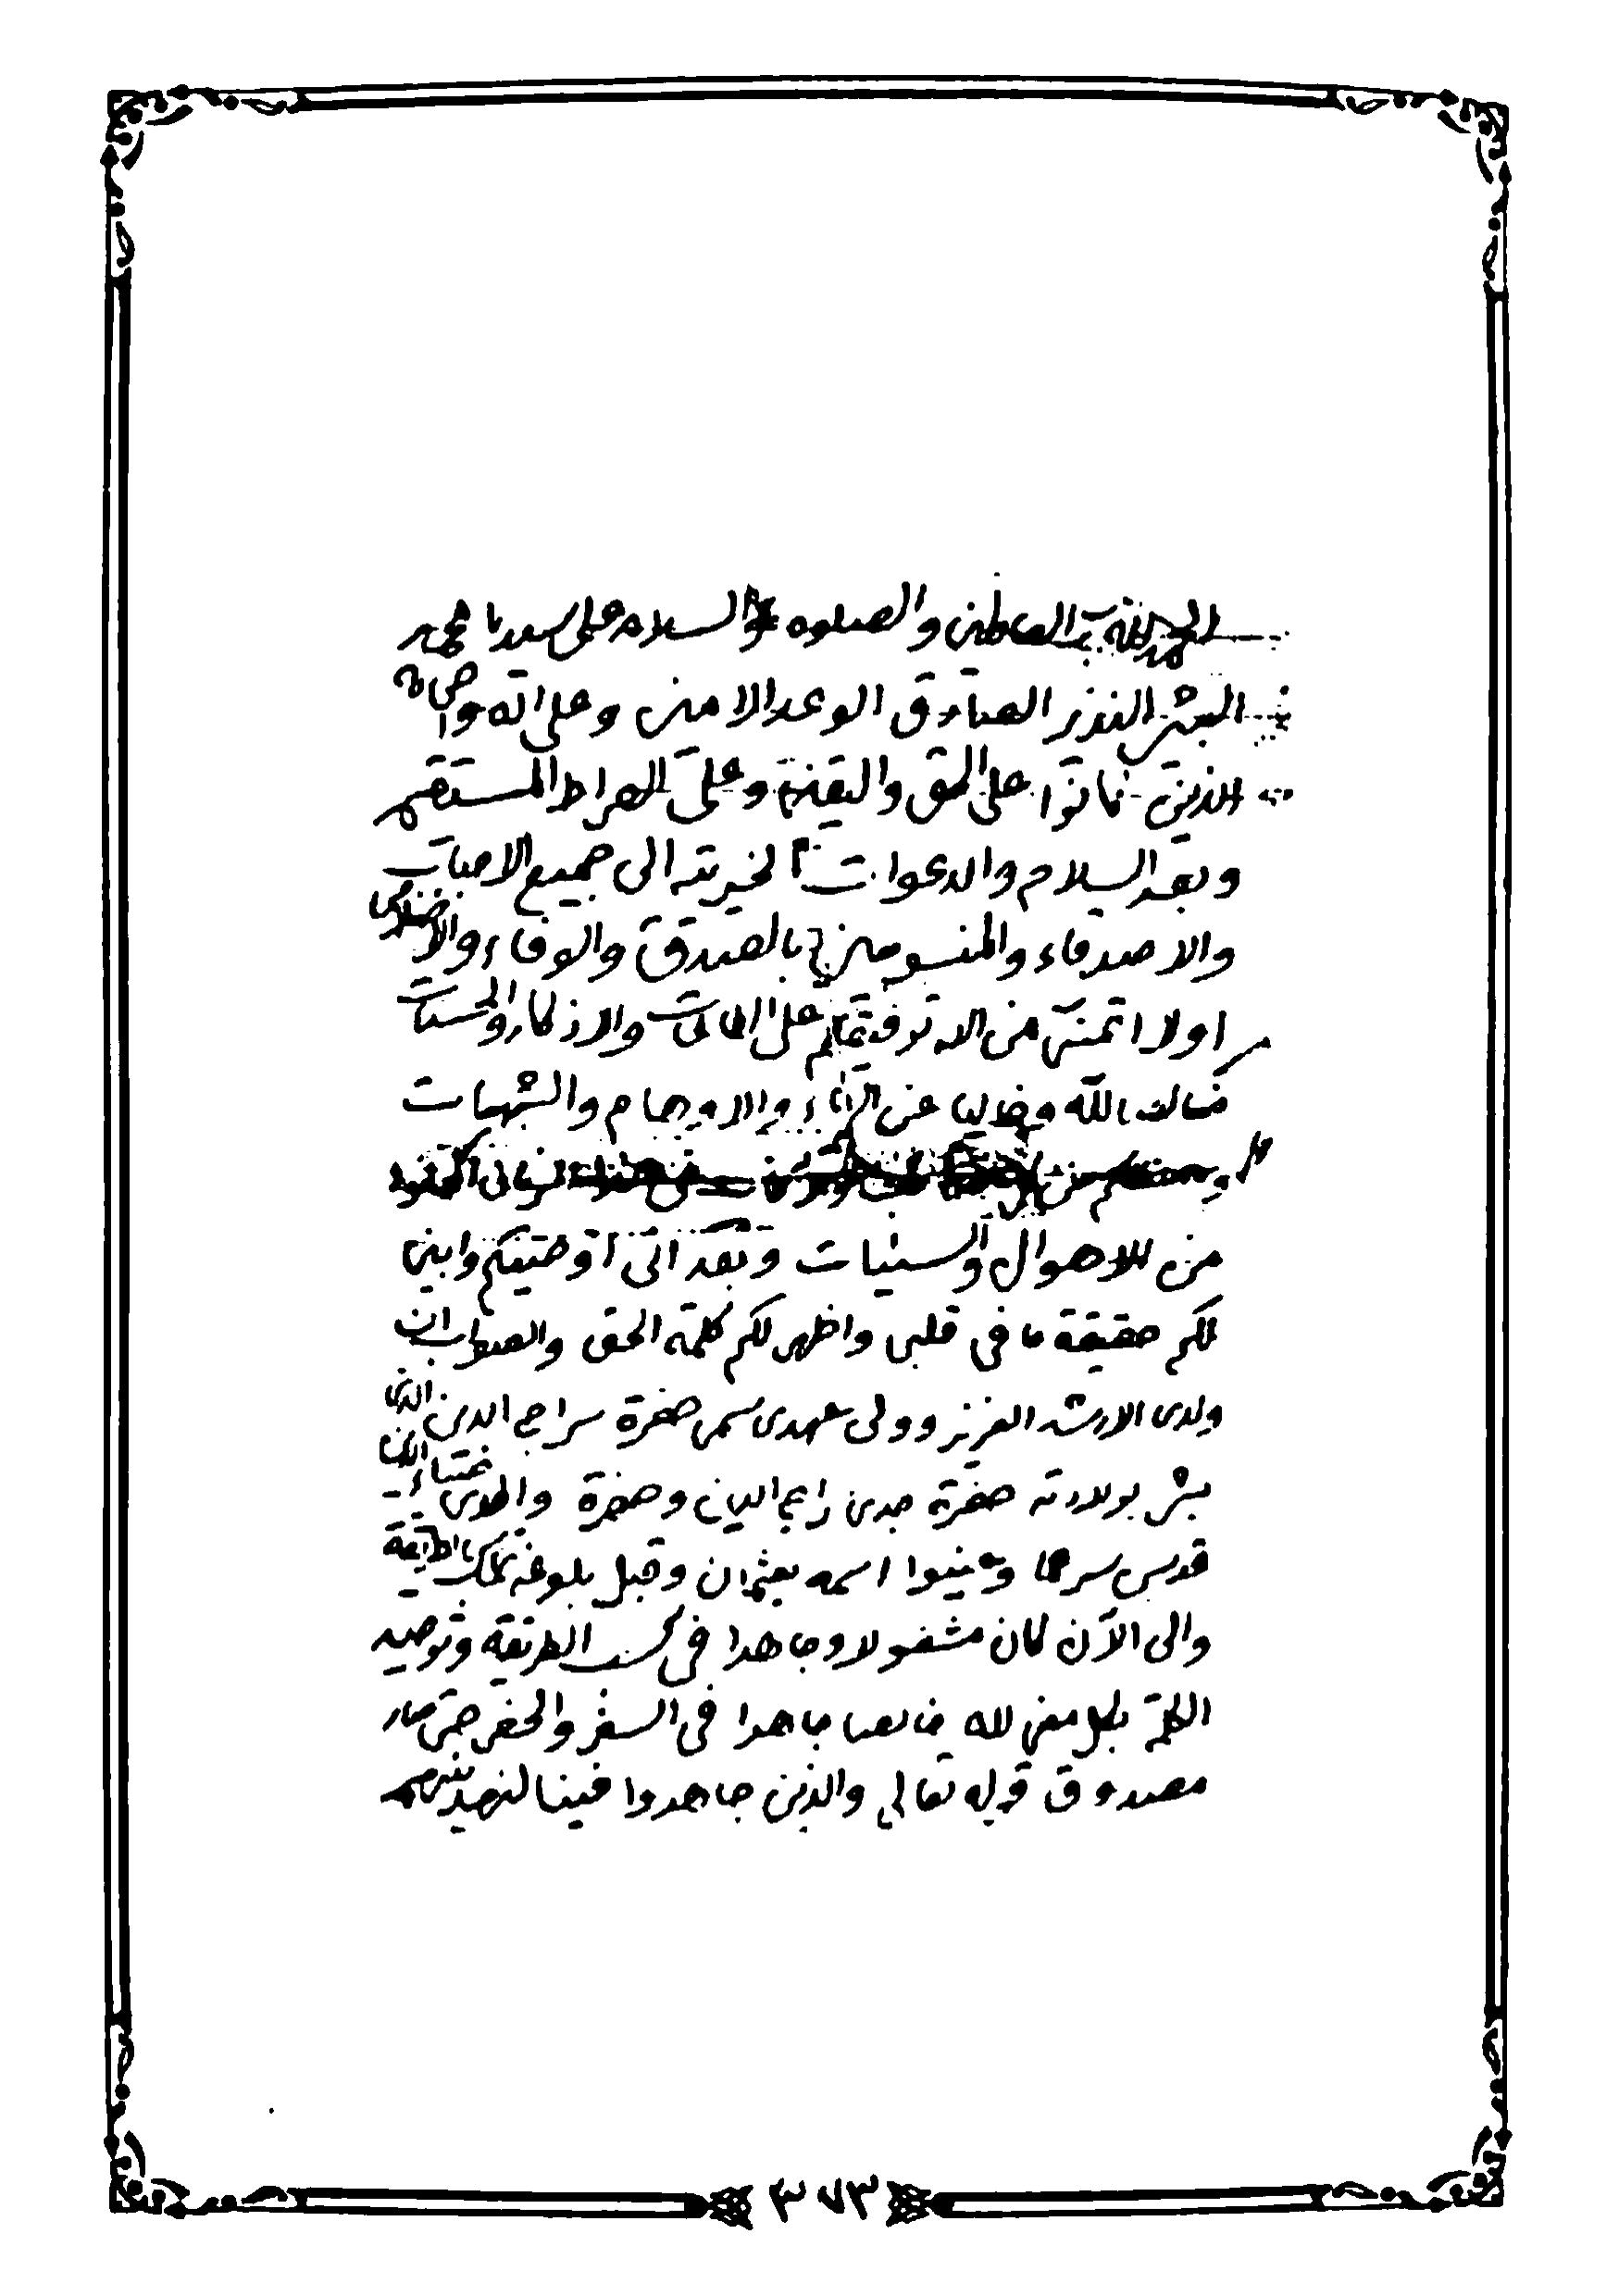 الحمد لله رب العالمين والصلوه والسلام على سيدنا محمد
البشير النذير الصادق الوعد الامين وعلى اله واصحابه
الذين كانوا على الحق واليقين وعلى الصراط المستقيم
وبعد السلام والدعوات الخيريته الى جميع الاحباب
والاصدقاء والمنسوبين بالصدق والوفاء والاخلاص
اولا اتمنى من الله توفيقاتكم على الطاعات والاذكار والحسنات
بالله عن الرياء والاوهام والشبهات
من الاهوال والسيئات وبعد انى اوصيكم وابين
لكم حقيقة ما فى قلبى واظهر لكم كلمة الحق والصواب ان
ولدى الارشد العزيز وولى عهدى سمى حضرة سراج الدين الذى
بشر بولادته حضرة جدى وحضرة والدى ضياء الدين
قدس سرهما وعينوا اسمه بعثمان وقبل بلوغه تمسك بالطريقة
والى الآن كان مشغولا وجاهدا فى كسب الطريقة وتوحيد
الكلمة بكل معنى لله خالصا جاهدا فى السفر والحضر حتى صار
مصدوق قوله تعالى والذين جاهدوا فينا لنهدينهم
٣٧٣